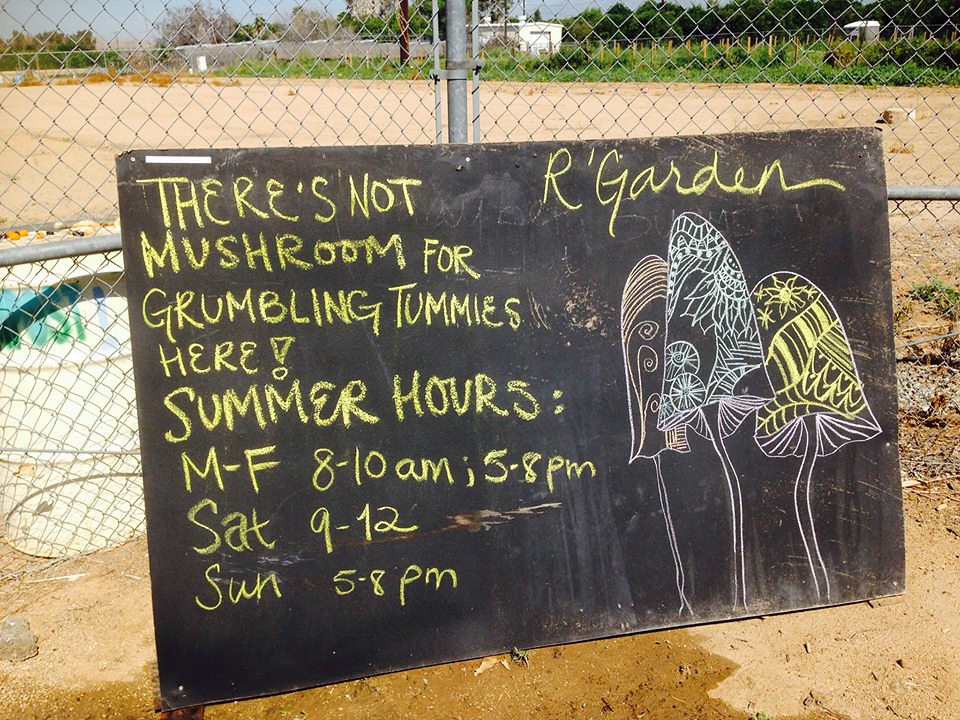 THERE'S NOT
MUSHROOM FOR
GRUMBLING TUMMIES
HERE!
SUMMER HOURS:
M-F 8-10am; 5-8pm
Sat 9-12
Sun 5-8pm
R'Garden